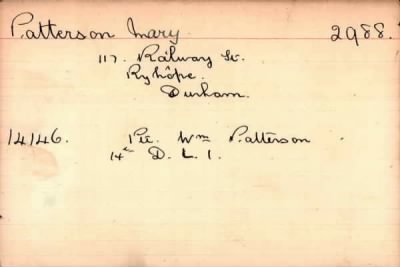 Patterson Mary. 2988.
117. Railway St.
Ryhope.
Durham.
14146. Pte. Wm Patterson
14th D. L. I.